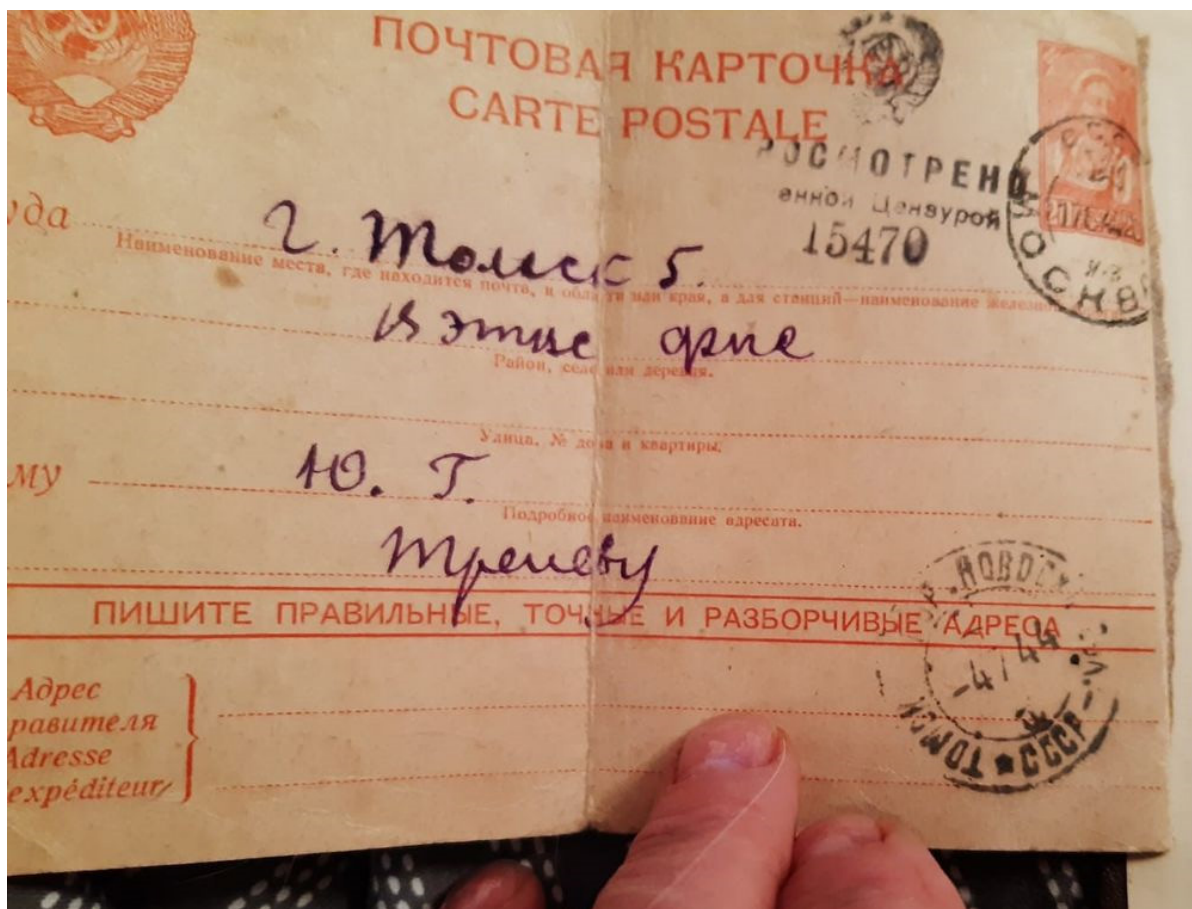 ПОЧТОВАЯ КАРТОЧКА
CARTE POSTALE
РОСМОТРЕНО
енной Цензурой
15470
МОСКВА
уда
г. Томск 5.
Наименование места, где находится почта, и области или края, а для станций—наименование
Район, село или деревня.
Улица, № дома и квартиры.
му
Ю. Г.
Подробное наименование адресата.
Треневу
ПИШИТЕ ПРАВИЛЬНЫЕ, ТОЧНЫЕ И РАЗБОРЧИВЫЕ АДРЕСА
Адрес
равителя
Adresse
expéditeur
ТОМСК СССР